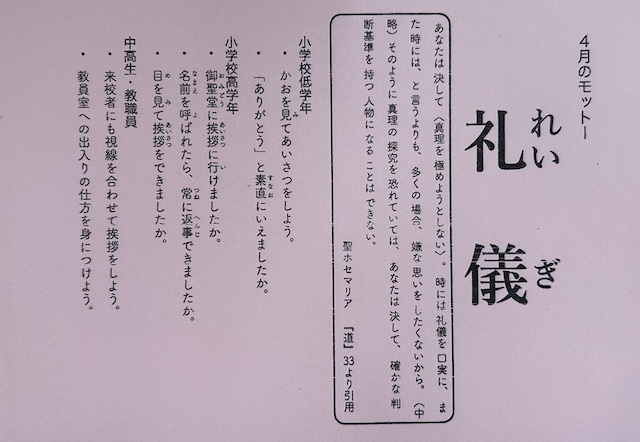 4月のモットー
礼儀
れいぎ
あなたは決して〈真理を極めようとしない〉。時には礼儀を口実に、ま
た時には、と言うよりも、多くの場合、嫌な思いをしたくないから。（中
略）そのように真理の探究を恐れていては、あなたは決して、確かな判
断基準を持つ人物になることはできない。
聖ホセマリア『道』33より引用
小学校低学年
・かおを見てあいさつをしよう。
み
・「ありがとう」と素直にいえましたか。
すなお
小学校高学年
・御聖堂に挨拶に行けましたか。
おみどう あいさつ い
・名前を呼ばれたら、常に返事できましたか。
なまえ よ つね へんじ
・目を見て挨拶をできましたか。
め み あいさつ
中高生・教職員
・来校者にも視線を合わせて挨拶をしよう。
・教員室への出入りの仕方を身につけよう。